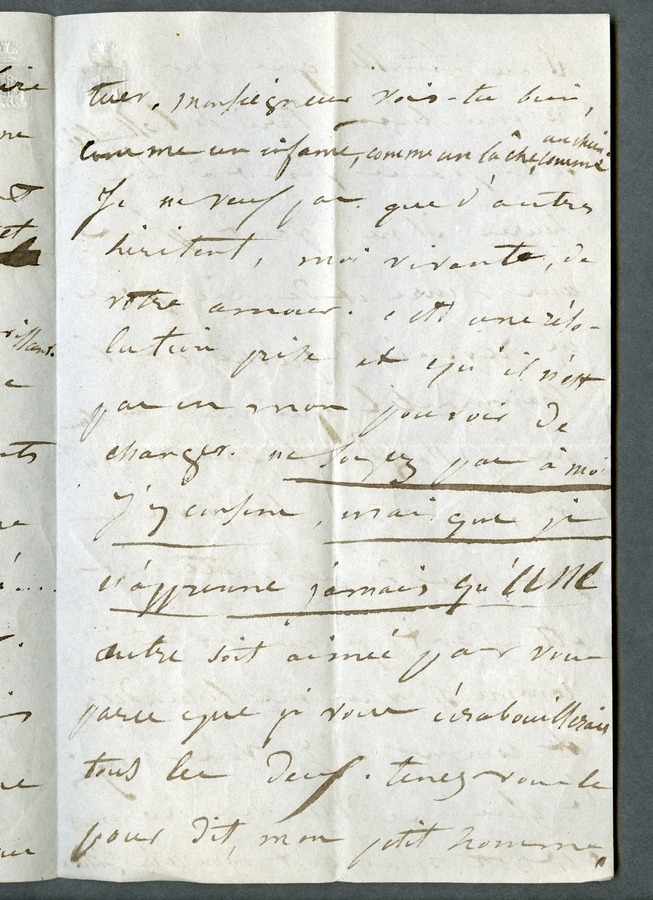 tuer, monseigneur vois-tu bien,
comme un infame, comme un lâche, comme un chien
Je ne veux pas que d'autres
héritent, moi vivante, de
votre amour. c'est une réso-
lution prise et qu'il n'est
pas en mon pouvoir de
changer. ne soyez pas à moi
j'y consens, mais que je
n'apprenne jamais qu'UNE
autre soit aimée par vous
parce que je vous écrabouillerais
tous les deux. tenez-vous le
pour dit, mon petit homme,